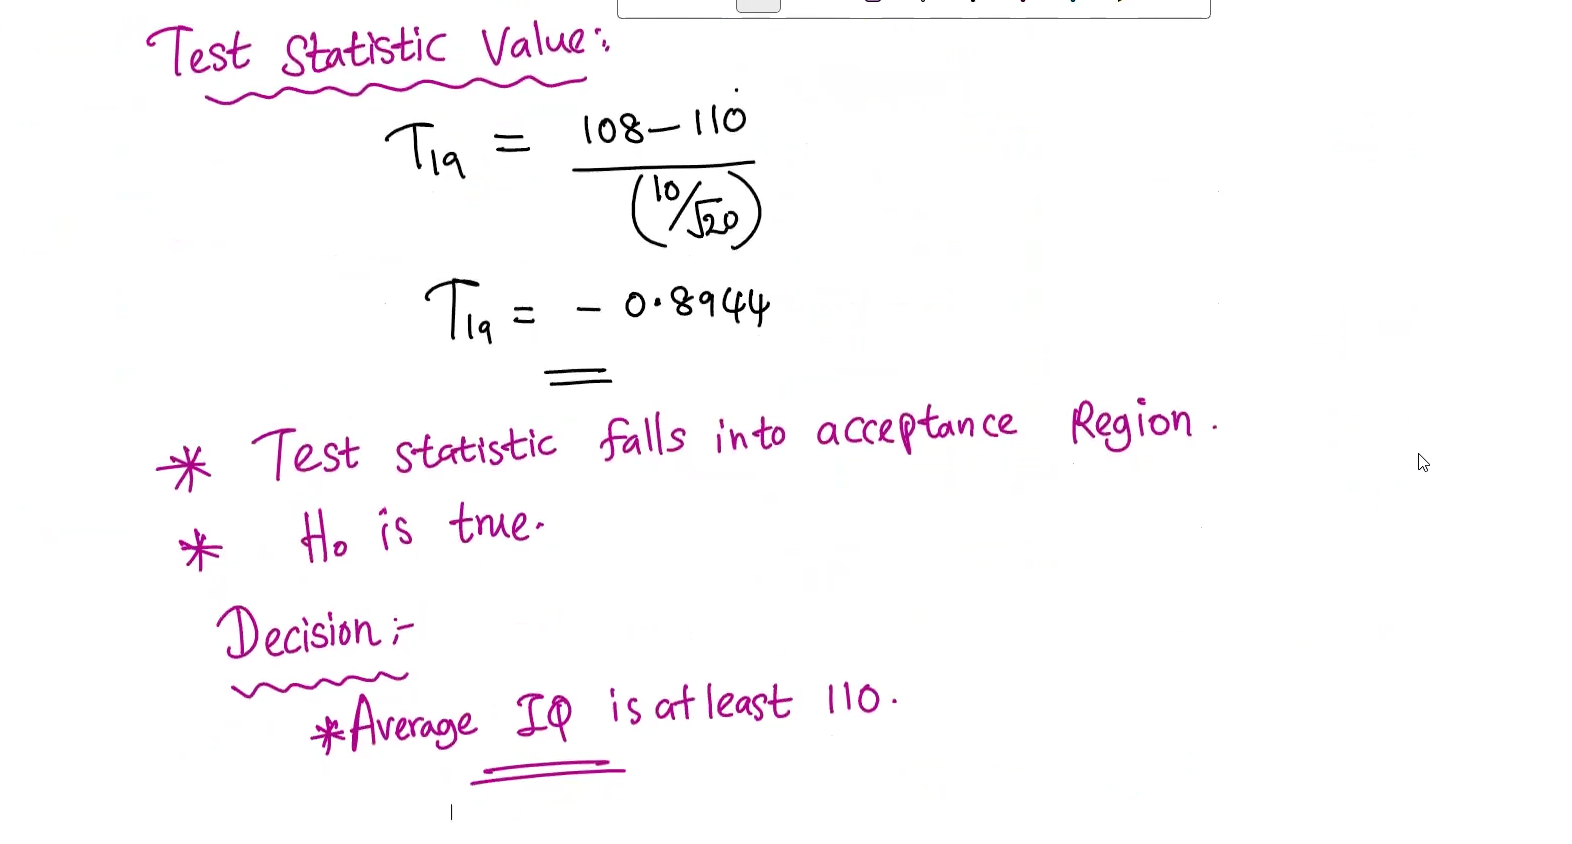 Test Statistic Value:
T19 = 108 – 110
(10/√20)
T19 = - 0.8944
* Test statistic falls into acceptance Region.
* H0 is true.
Decision :-
* Average IQ is at least 110.